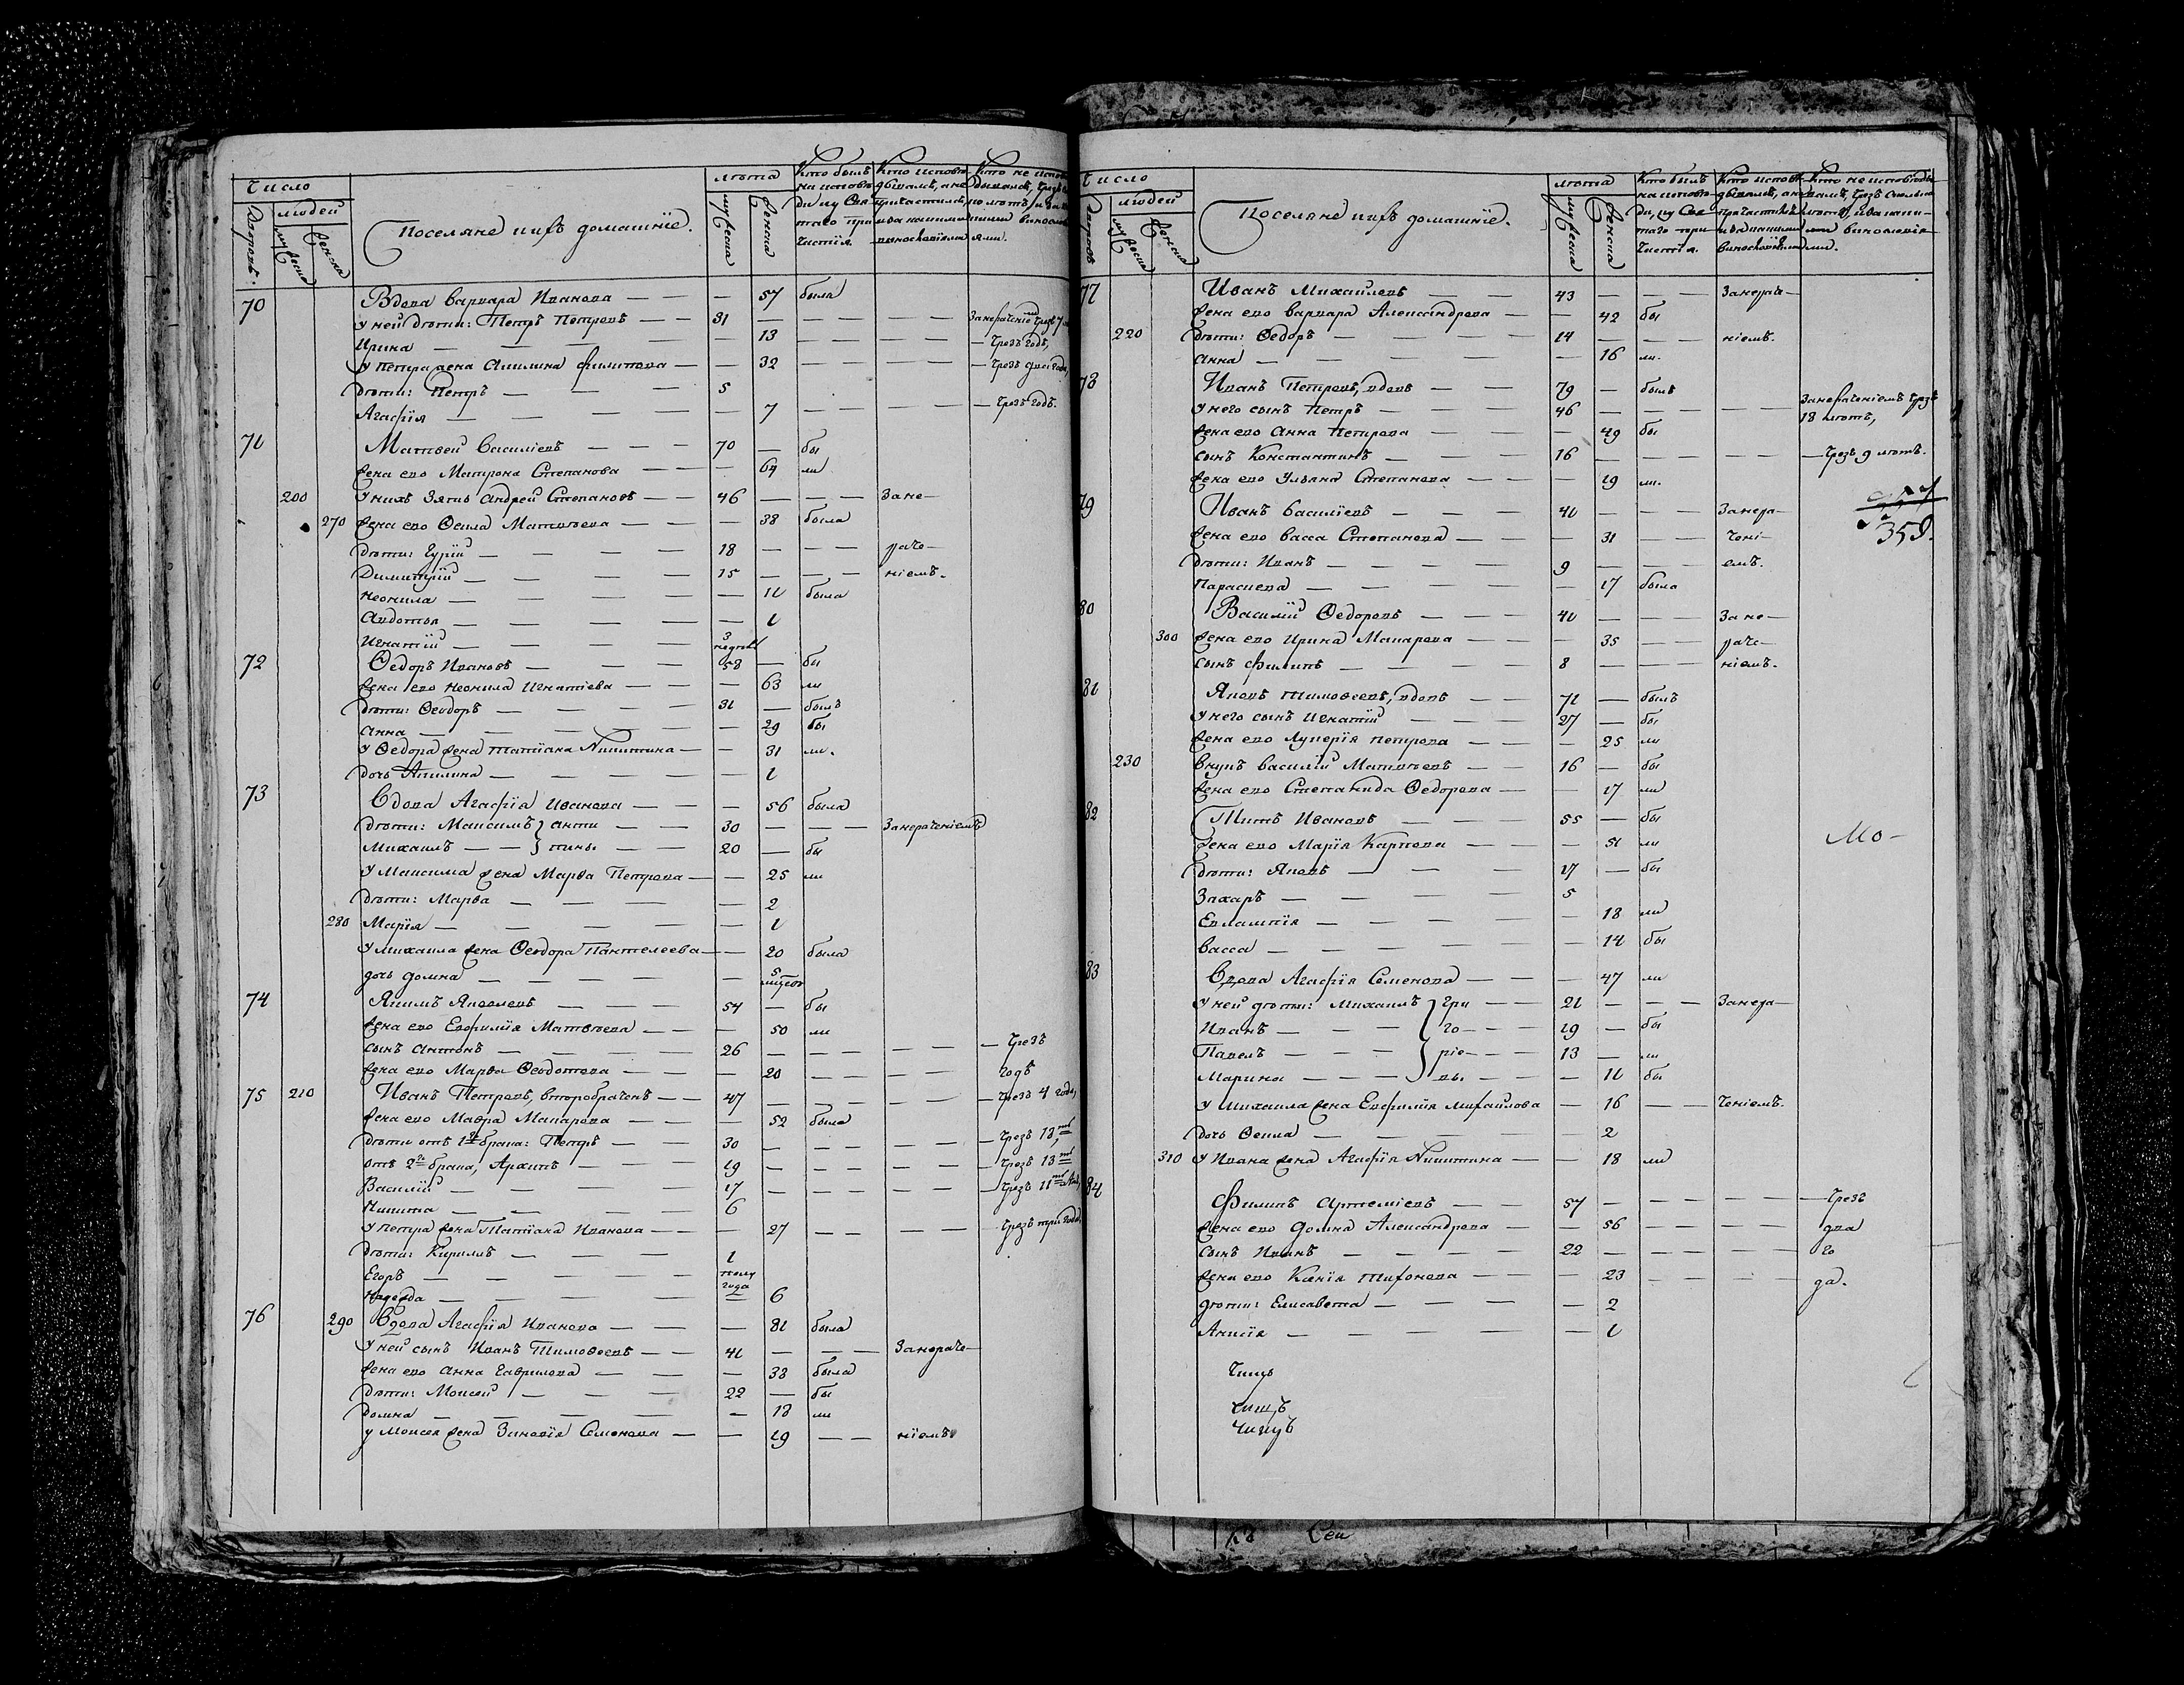 Число
людей
Поселяне ихъ домашніе.
лѣта
70 Вдова Варвара Иванова — 57 была
У ней дѣти: Петръ Петровъ — 31 —
Ирина — 13 — чрезъ годъ,
У Петра жена Акилина Филипова — 32 — чрезъ два года,
дѣти: Петръ — 5
Агафія — 7 — чрезъ годъ.
71 Матвей Василіевъ — 70 — бы
жена его Матрона Степанова — 64 ли
200 У нихъ зять Андрей Степановъ — 46 — Зане-
270 жена его Ѳекла Матвѣева — 38 была
дѣти: Гурій — 18 — раче-
Димитрій — 15 — ніемъ.
Неонила — 11 была
Авдотья — 1
Игнатій — 3 недель
72 Ѳедоръ Ивановъ — 58 — бы
жена его Неонила Игнатіева — 63 ли
дѣти: Ѳеодоръ — 31 — былъ
Анна — 29 бы
У Ѳедора жена Татіана Никитина — 31 ли.
дочь Акилина — 1
73 Вдова Агафія Иванова — 56 была
дѣти: Максимъ } анти — 30 — Занераченіемъ
Михаилъ — } пины — 20 — бы
У Максима жена Марѳа Петрова — 25 ли
дѣти: Марѳа — 2
280 Марія — 1
У Михаила жена Ѳеодора Пантелеева — 20 была
дочь Домна — 5 мцсов
74 Якимъ Яковлевъ — 54 — бы
жена его Евфимія Матвѣева — 50 ли
сынъ Антонъ — 26 — чрезъ
жена его Марѳа Ѳеодотова — 20 — годъ
75 210 Иванъ Петровъ, второбраченъ — 47 — чрезъ 4 года,
жена его Мавра Макарова — 52 была
дѣти отъ 1го брака: Петръ — 30 — чрезъ 13,
отъ 2го брака, Архипъ — 19 — чрезъ 13
Василій — 17 — чрезъ 11
Никита — 6
У Петра жена Татіана Иванова — 27 — чрезъ три года,
дѣти: Кириллъ — 1
Егоръ — полу года
Надежда — 6
76 290 Вдова Агафія Иванова — 81 была
У ней сынъ Иванъ Тимоѳеевъ — 41 — Занераче-
жена его Анна Гаврилова — 38 была
дѣти: Моисей — 22 — бы
Домна — 18 ли
У Моисея жена Зиновія Семенова — 19 — ніемъ
Число
людей
Поселяне ихъ домашніе.
лѣта
77 Иванъ Михайловъ — 43 — Занерач-
жена его Варвара Александрова — 42 бы
220 дѣти: Ѳедоръ — 14 — ніемъ.
Анна — 16 ли.
78 Иванъ Петровъ, вдовъ — 79 — былъ
У него сынъ Петръ — 46 — Занераченіемъ чрезъ 18 лѣтъ,
жена его Анна Петрова — 49 бы
сынъ Константинъ — 16 — чрезъ 9 лѣтъ.
жена его Ульяна Степанова — 19 ли.
79 Иванъ Василіевъ — 41 — Занера-
359.
жена его Васса Степанова — 31 — чені-
дѣти: Иванъ — 9 — емъ.
Параскева — 17 была
80 Василій Ѳедоровъ — 41 — Зане-
300 жена его Ирина Макарова — 35 — раче-
сынъ Филипъ — 8 — ніемъ.
81 Яковъ Тимоѳеевъ, вдовъ — 71 — былъ
У него сынъ Игнатій — 27 — бы
жена его Лукерія Петрова — 25 ли
230 внукъ Василій Матвѣевъ — 16 — бы
жена его Степанида Ѳедорова — 17 ли
82 Титъ Ивановъ — 55 — бы
Мо-
жена его Марія Карпова — 51 ли
дѣти: Яковъ — 17 — бы
Захаръ — 5
Евлампія — 18 ли
Васса — 14 бы
83 Вдова Агафія Семенова — 47 ли
У ней дѣти: Михаилъ } гри — 21 — Занера-
Иванъ — } го — 19 — бы
Павелъ — } ріе — 13 — ли
Марина — } вы — 11 бы
У Михаила жена Евфимія Михайлова — 16 — ченіемъ.
дочь Ѳекла — 2
310 У Ивана жена Агафія Никитина — 18 ли
84 Филипъ Артеміевъ — 57 — чрезъ
жена его Домна Александрова — 56 — два
сынъ Иванъ — 22 — го
жена его Ксенія Тихонова — 23 — да.
дѣти: Елисавета — 2
Анисія — 1